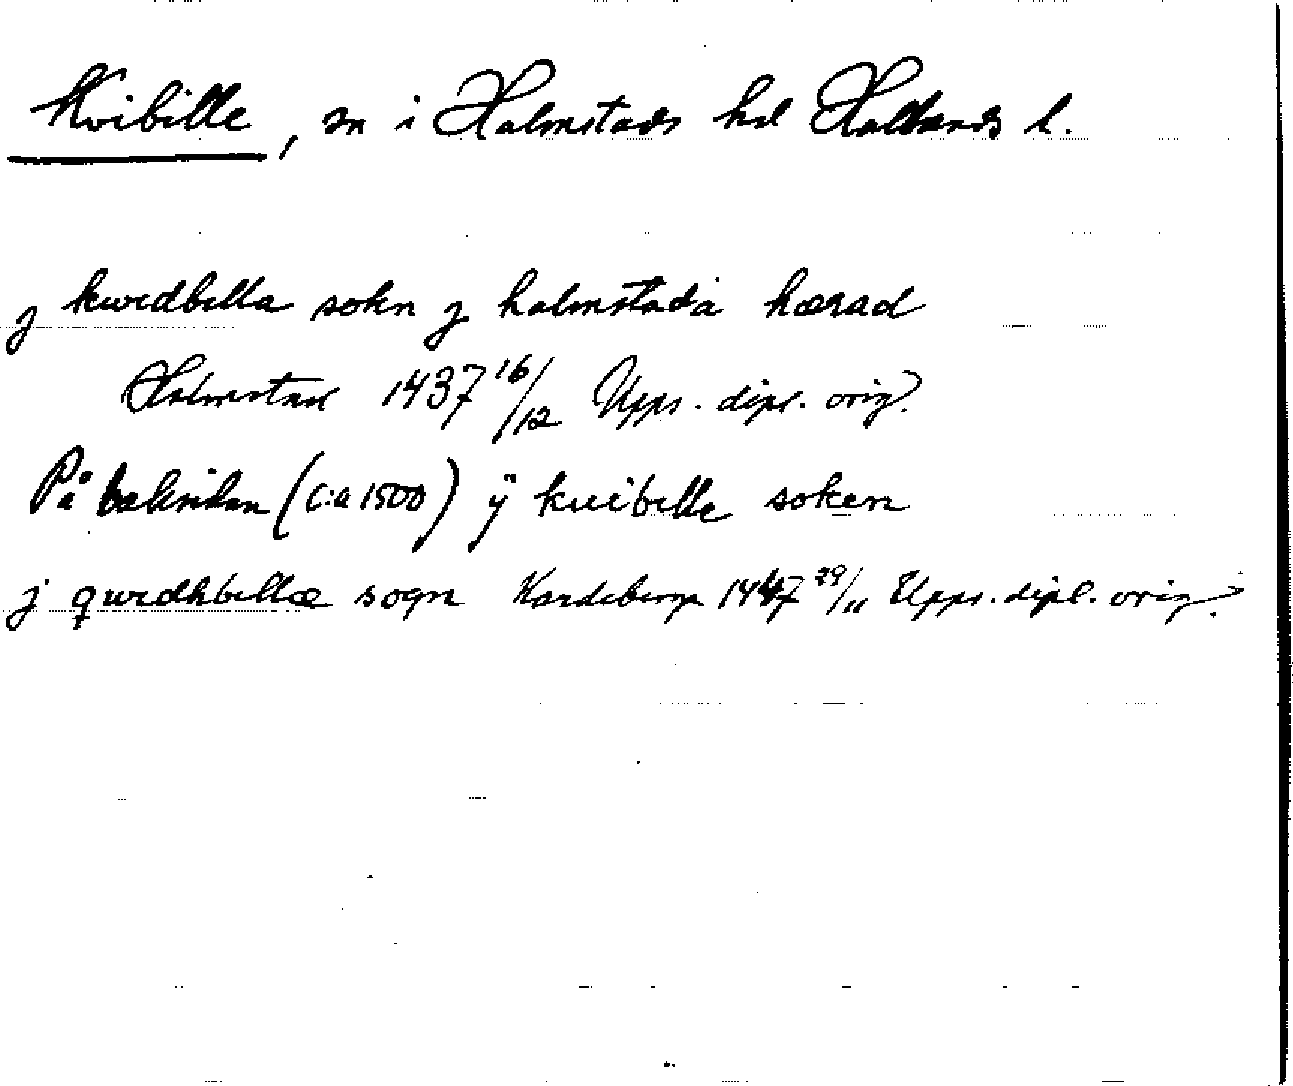 Kvibille, sn i Halmstads hd Hallands l.
j kwedbella sokn j halmstada hærad
Halmstad 1437 16/12 Upps. dipl. orig.
På baksidan (c:a 1500) ÿ kuibelle soken
j qwedhbellæ sogn Kardeberga 1447 29/11 Upps. dipl. orig.